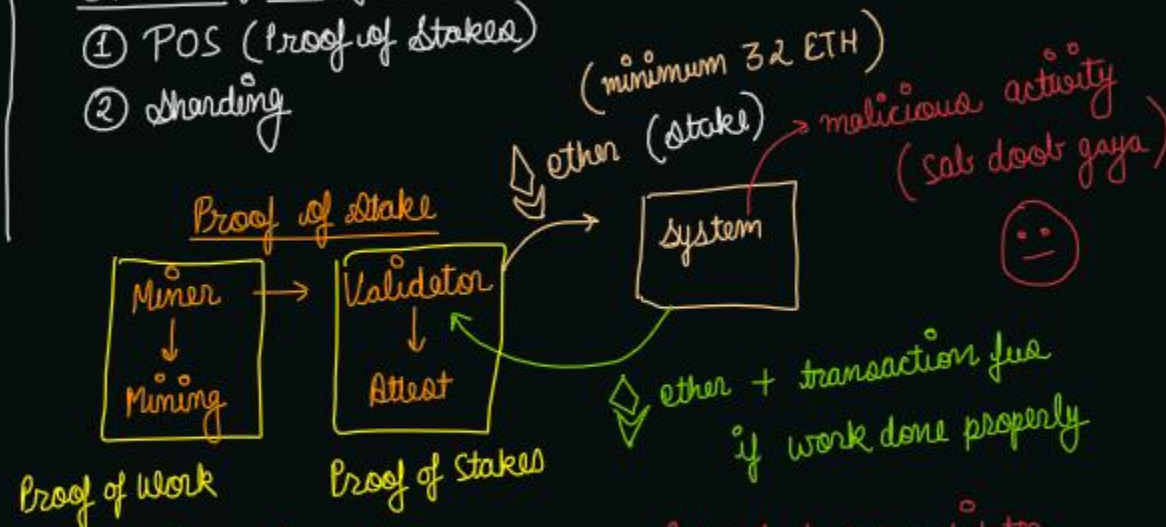 ① POS (Proof of Stakes)
② Sharding
(minimum 32 ETH)
ether (stake)
malicious activity
(sab doob gaya)
Proof of Stake
System
Miner
Mining
Validetor
Attest
ether + transaction fees
if work done properly
Proof of Work
Proof of Stakes